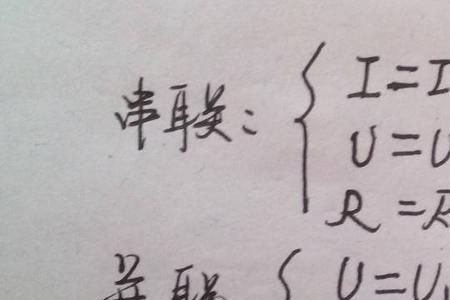 串联: I = I
U = U
R = R
并联 U = U₁